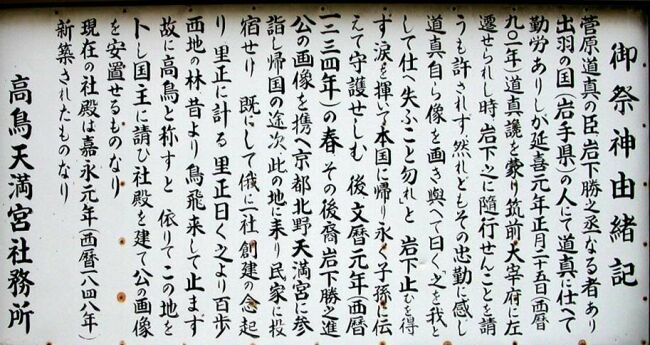 御祭神由緒記
菅原道真の臣岩下勝之丞なる者あり
出羽の国(岩手県)の人にて道真に仕へて
勤労ありしが延喜元年正月二十五日(西暦
九〇一年)道真讒を蒙り筑前大宰府に左
遷せられし時岩下之に随行せんことを請
うも許されず、然れどもその忠勤に感じ
道真自ら像を画き與へて曰く「之を我と
して仕へ失ふこと勿れ」と 岩下止むを得
ず涙を揮いて本国に帰り永く子孫に伝
えて守護せしむ 後文暦元年(西暦
一二三四年)の春 その後裔岩下勝之進
公の画像を携へ京都北野天満宮に参
詣し帰国の途次、此の地に来り民家に投
宿せり 既にして俄に一社創建の念起
り里正に計る 里正曰く之より百歩
西地の林昔より鳥飛来して止まず
故に高鳥と称すと 依りてこの地を
卜し国主に請ひ社殿を建て公の画像
を安置せるものなり
現在の社殿は嘉永元年(西暦一八四八年)
新築されたものなり
高鳥天満宮社務所